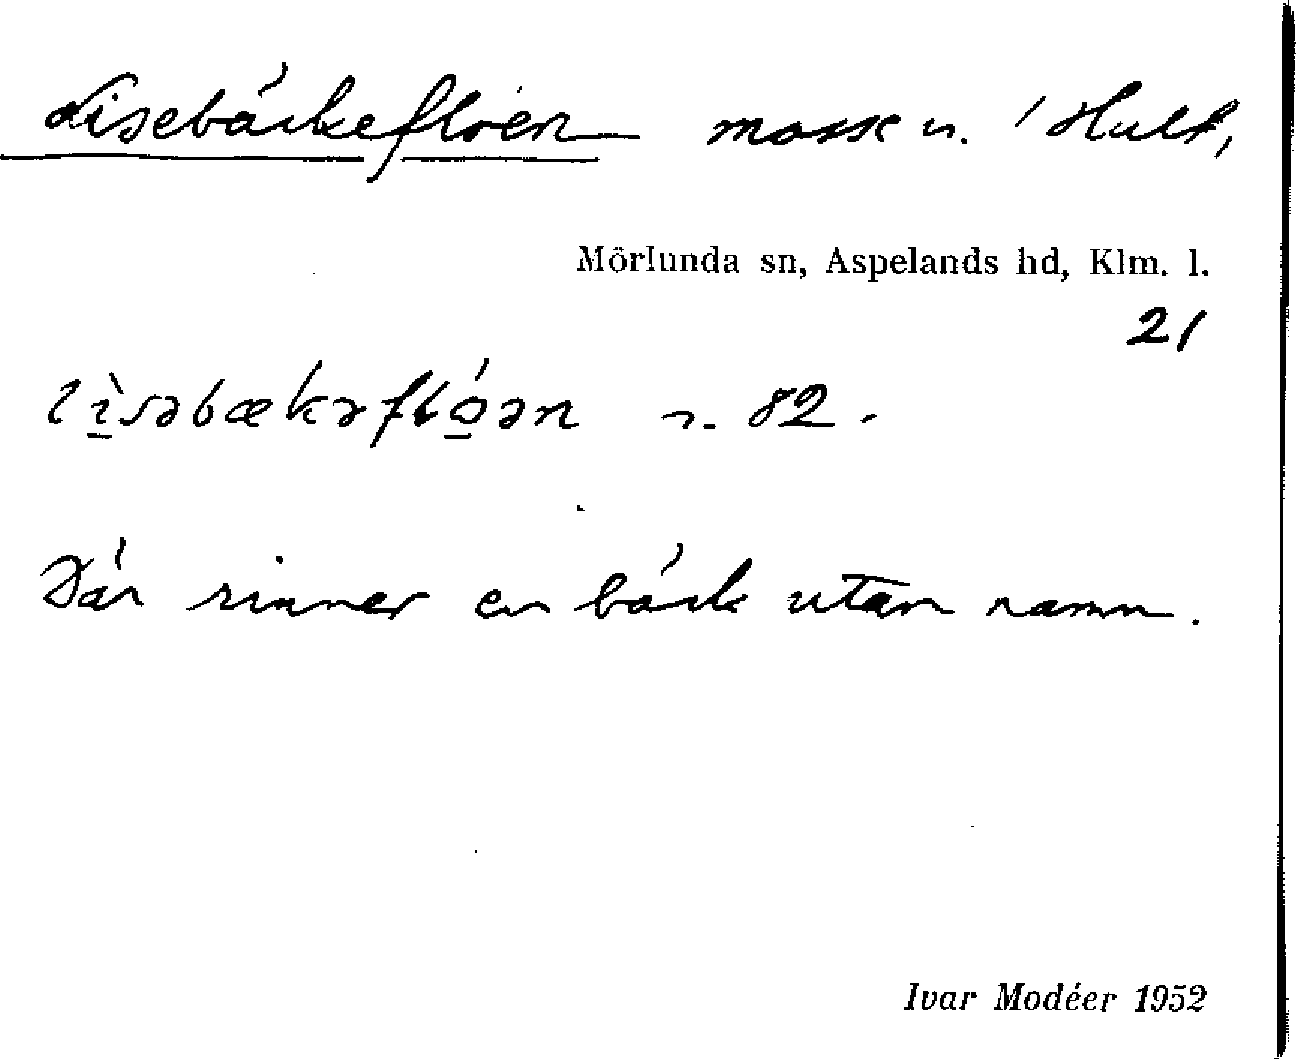 Lisebäckeflöen mosse n. i Hult,
Mörlunda sn, Aspelands hd, Klm. l.
21
lìsəbækəflǿən n. 82.
Där rinner en bäck utan namn.
Ivar Modéer 1952